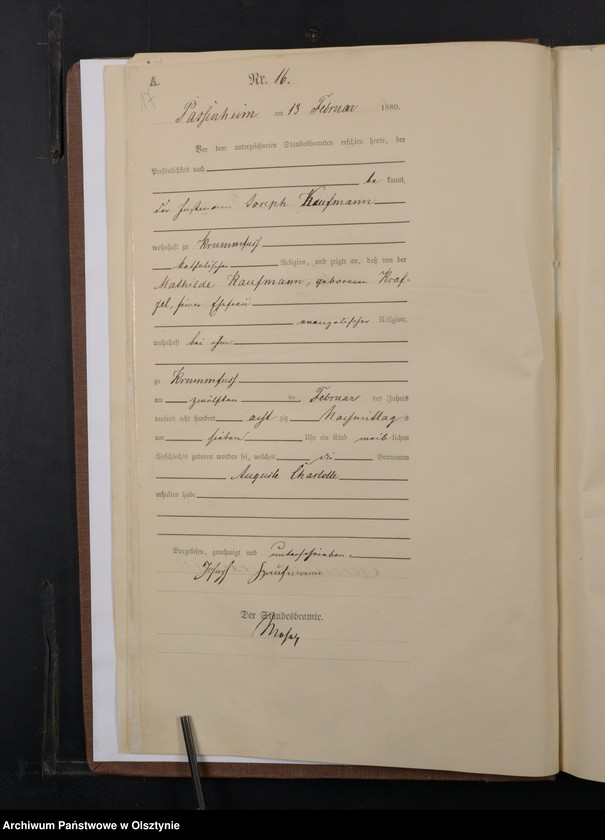 A.
Nr. 16.
Passenheim am 13 Februar 1880.
Vor dem unterzeichneten Standesbeamten erschien heute, der
Persönlichkeit nach
be kannt,
der Instmann Joseph Kaufmann
wohnhaft zu Krummfuß
katholischer Religion, und zeigte an, daß von der
Mathilde Kaufmann, geborenen
seiner Ehefrau
evangelischer Religion,
wohnhaft bei ihm
zu Krummfuß
am zwölften ten Februar des Jahres
tausend acht hundert acht zig Nachmittag s
um sieben Uhr ein Kind weib lichen
Geschlechts geboren worden sei, welches die Vornamen
Auguste Charlotte
erhalten habe
Vorgelesen, genehmigt und unterschrieben.
Joseph Kaufmann
Der Standesbeamte.
Archiwum Państwowe w Olsztynie